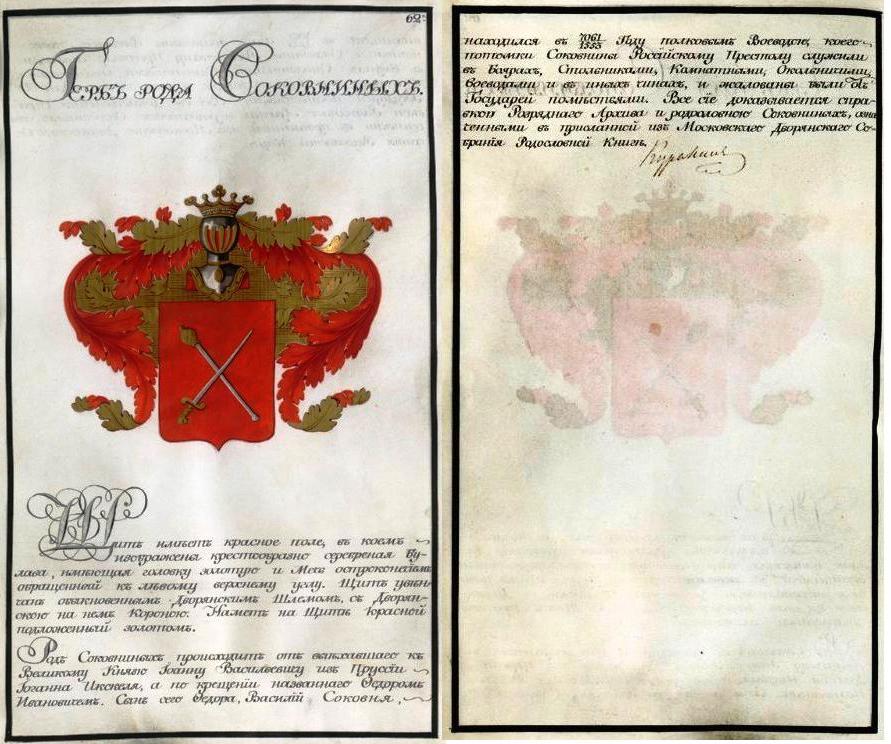 62.
Гербъ рода Соковниныхъ.
Щитъ имѣетъ красное поле, въ коемъ
изображены крестообразно серебреная Бу-
лава, имѣющая головку золотую и Мечь остроконечiемъ
обращенный къ лѣвому верхнему углу. Щитъ увѣн-
чанъ обыкновеннымъ Дворянскимъ Шлемомъ, съ Дворян-
скою на немъ Короною. Наметъ на Щитѣ красной
подложенный золотомъ.
Родъ Соковниныхъ происходитъ отъ выѣхавшаго къ
Великому Князю Iоанну Васильевичу изъ Прусiи
Iоганна Икскеля, а по крещенiи названнаго Ѳедоромъ
Ивановичемъ. Сынъ сего Ѳедора, Василiй Соковня,
находился въ 7061/1553 Году полковымъ Воеводою, коего
потомки Соковнины Россiйскому Престолу служили
въ Боярахъ, Стольниками, Комнатными, Окольничими,
Воеводами и въ иныхъ чинахъ, и жалованы были отъ
Государей помѣстьями. Все сiе доказывается спра-
вкою Разряднаго Архива и родословною Соковниныхъ, озна-
ченными въ присланной изъ Московскаго Дворянскаго Со-
бранiя Родословной Книгѣ.
Куракинъ